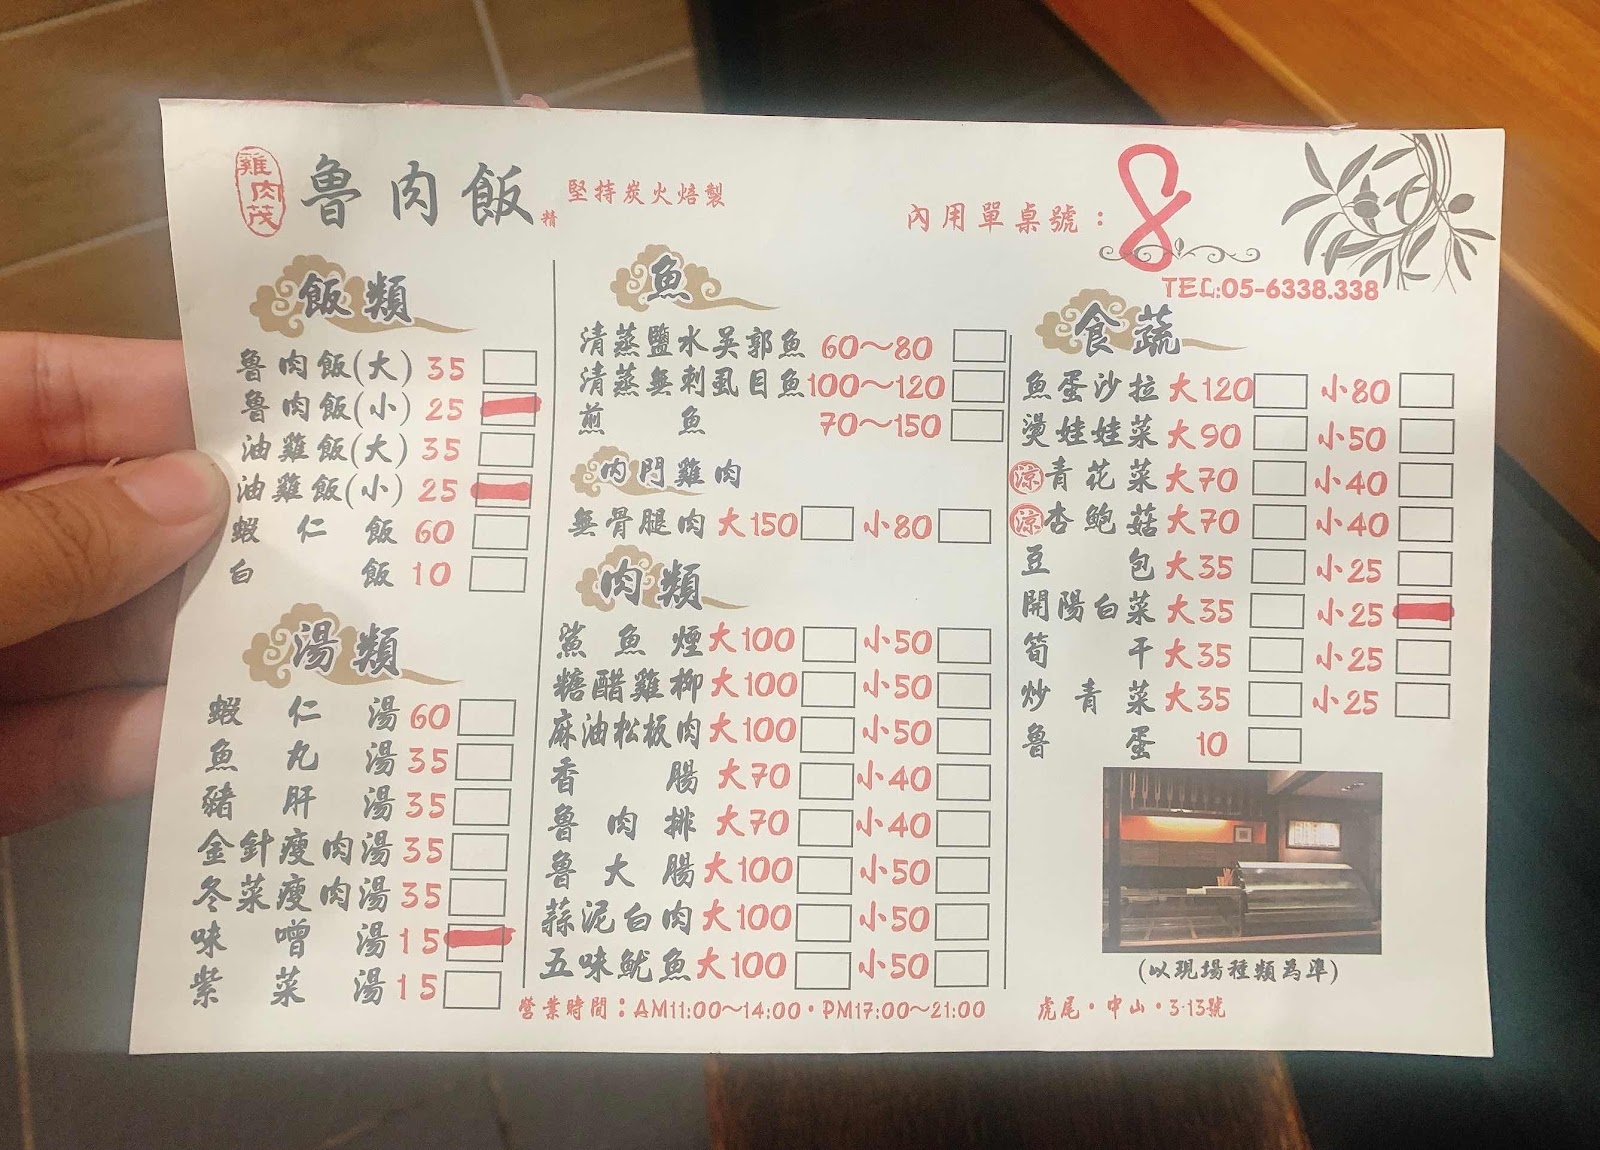 雞肉茂
魯肉飯精
堅持炭火焙製
內用單桌號：8
TEL:05-6338.338
飯類
魯肉飯(大) 35
魯肉飯(小) 25
油雞飯(大) 35
油雞飯(小) 25
蝦仁飯 60
白飯 10
湯類
蝦仁湯 60
魚丸湯 35
豬肝湯 35
金針瘦肉湯 35
冬菜瘦肉湯 35
味噌湯 15
紫菜湯 15
魚
清蒸鹽水吴郭魚 60～80
清蒸無刺虱目魚 100～120
煎魚 70～150
內門雞肉
無骨腿肉 大150 小80
肉類
鯊魚煙 大100 小50
糖醋雞柳 大100 小50
麻油松板肉 大100 小50
香腸 大70 小40
魯肉排 大70 小40
魯大腸 大100 小50
蒜泥白肉 大100 小50
五味魷魚 大100 小50
食蔬
魚蛋沙拉 大120 小80
燙娃娃菜 大90 小50
涼 青花菜 大70 小40
涼 杏鮑菇 大70 小40
豆包 大35 小25
開陽白菜 大35 小25
筍干 大35 小25
炒青菜 大35 小25
魯蛋 10
(以現場種類為準)
營業時間：AM11:00～14:00・PM17:00～21:00
虎尾・中山・3-13號